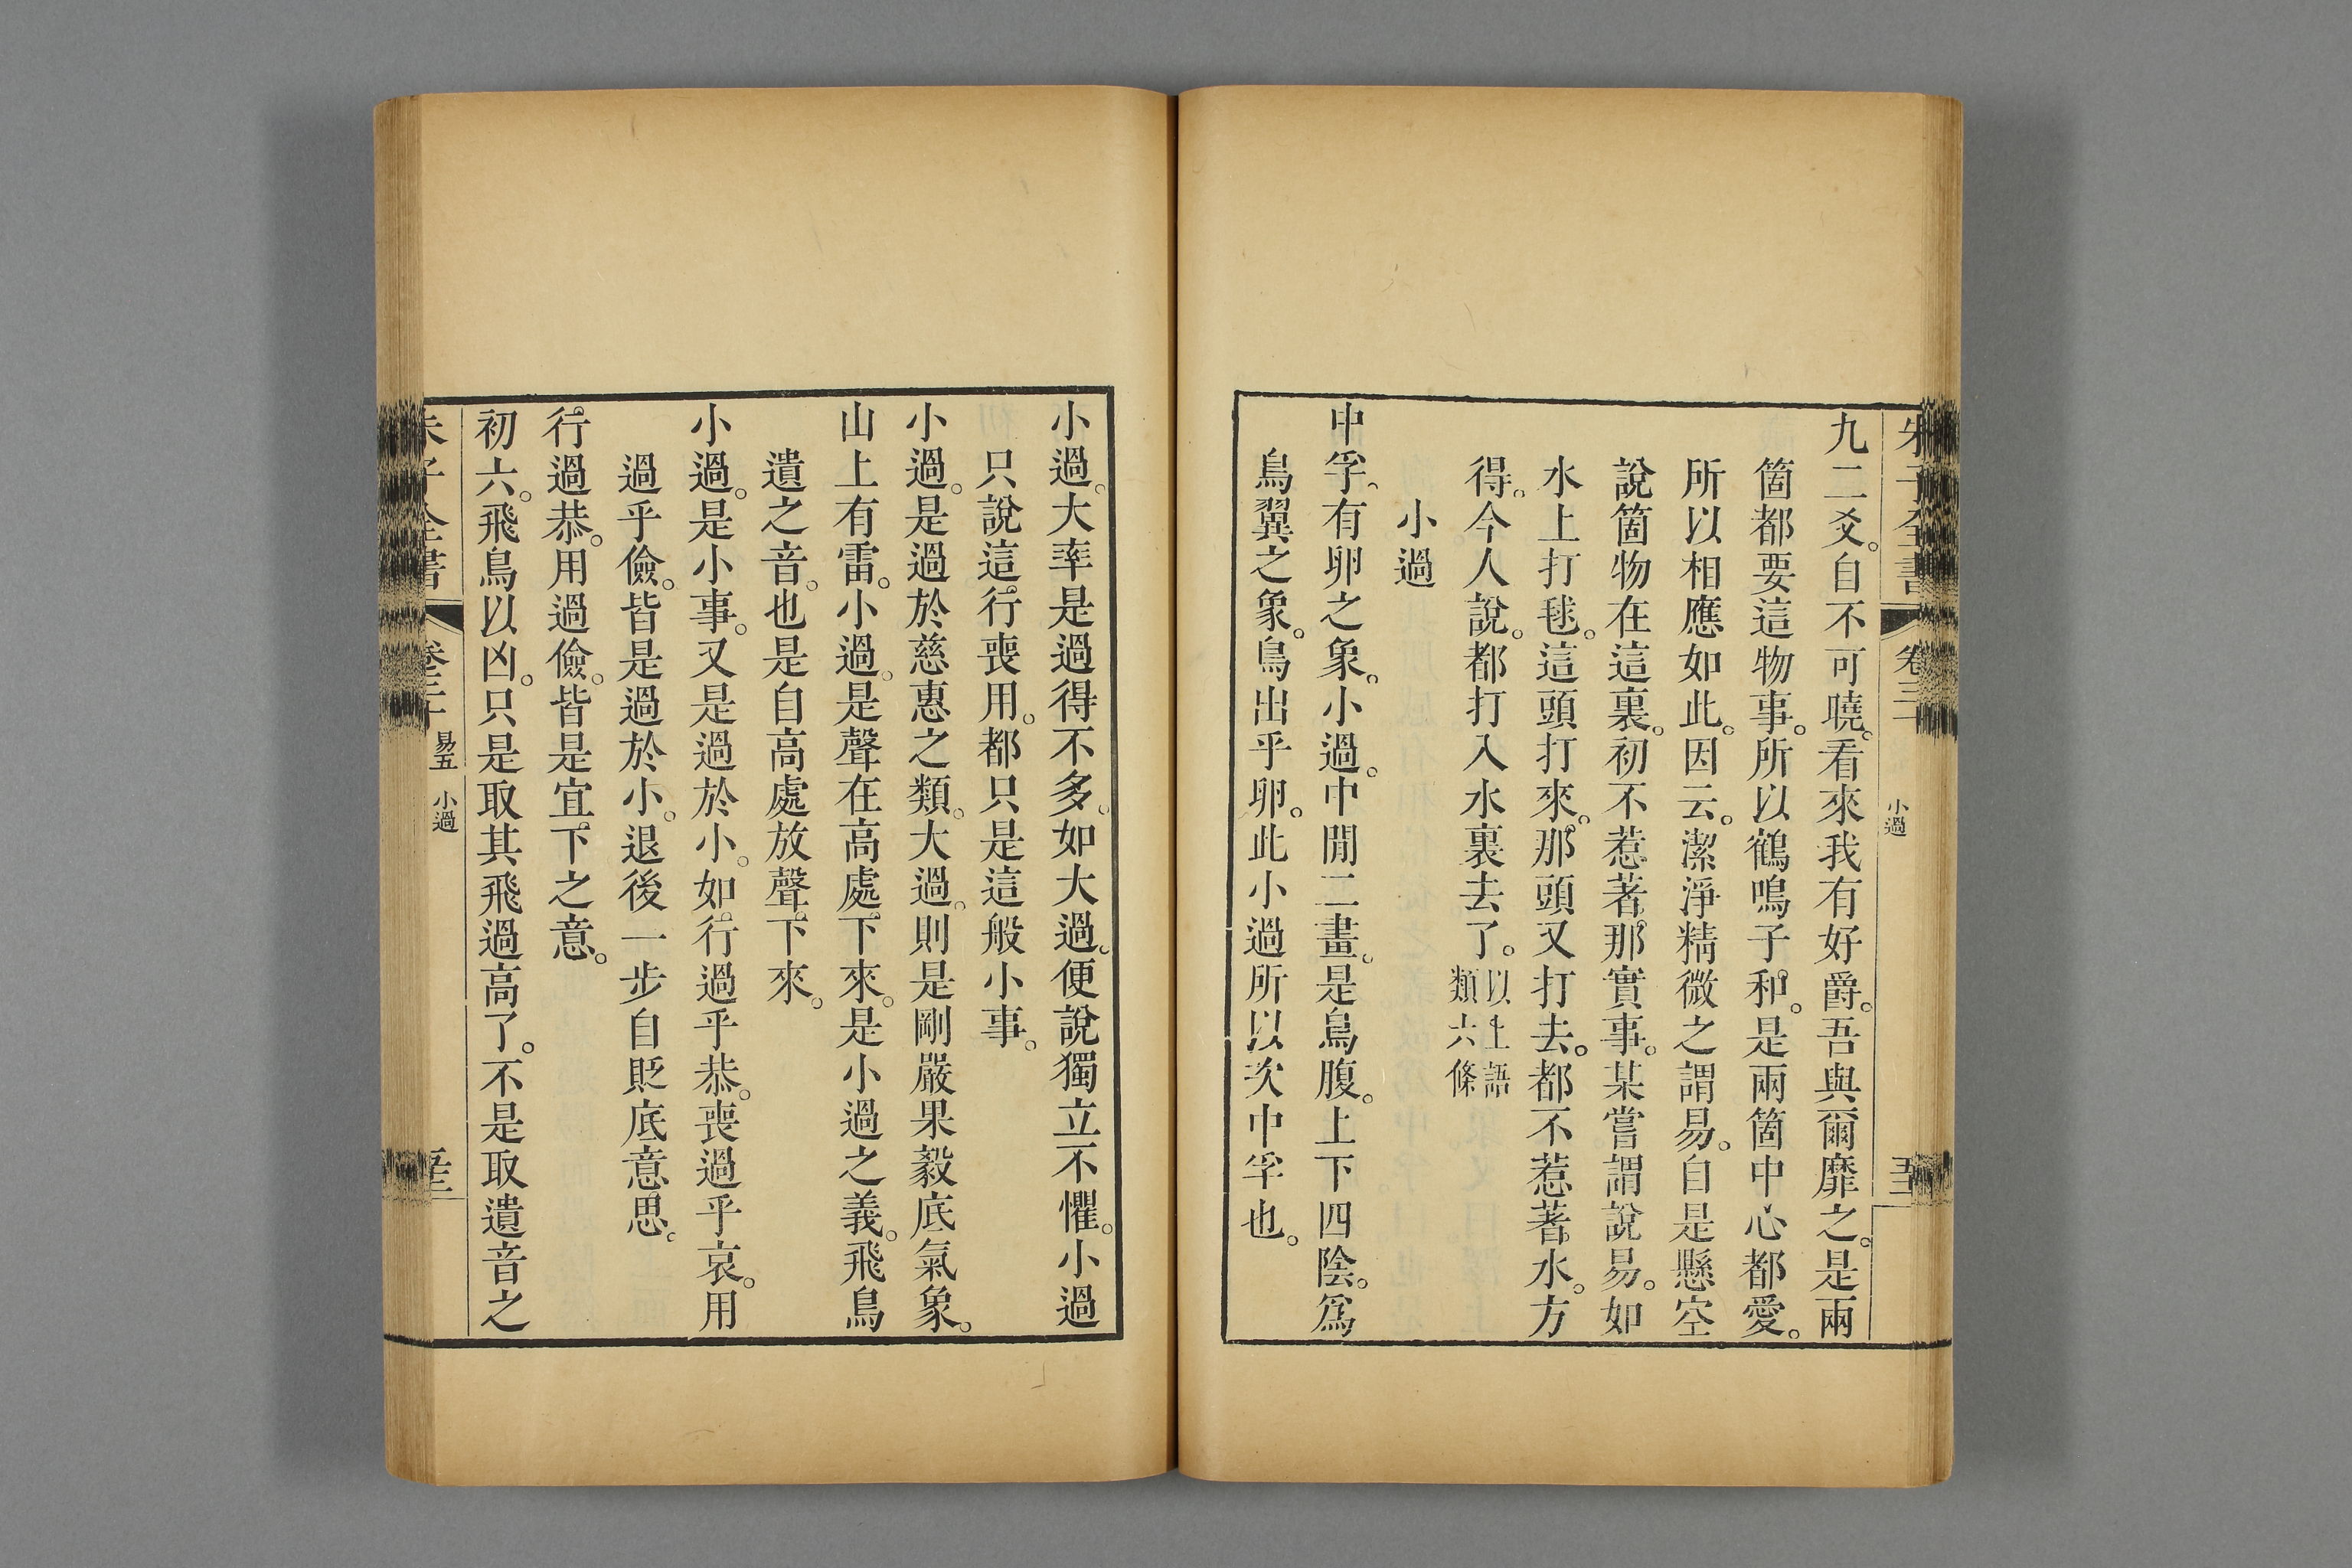 九二爻。自不可曉。看來我有好爵。吾與爾靡之。是兩
箇都要這物事。所以鶴鳴子和。是兩箇中心都愛。
所以相應如此。因云。潔淨精微之謂易。自是懸空
說箇物在這裏。初不惹著那實事。某嘗謂說易。如
水上打毬。這頭打來。那頭又打去。都不惹著水。方
得。今人說。都打入水裏去了。以上語類六條
小過
中孚。有卵之象。小過。中閒二畫。是鳥腹。上下四陰。爲
鳥翼之象。鳥出乎卵。此小過所以次中孚也。
小過。大率是過得不多。如大過。便說獨立不懼。小過
只說這行喪用。都只是這般小事。
小過。是過於慈惠之類。大過。則是剛嚴果毅底氣象。
山上有雷。小過。是聲在高處下來。是小過之義。飛鳥
遺之音。也是自高處放聲下來。
小過。是小事。又是過於小。如行過乎恭。喪過乎哀。用
過乎儉。皆是過於小。退後一步自貶底意思。
行過恭。用過儉。皆是宜下之意。
初六。飛鳥以凶。只是取其飛過高了。不是取遺音之
易五
小過
小過